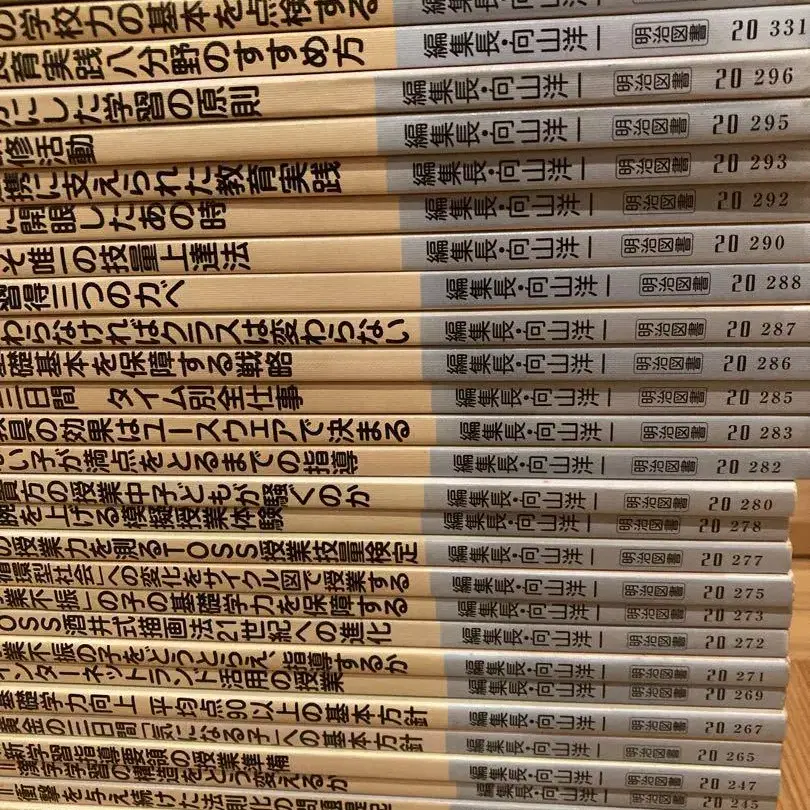 の学校力の基本を点検する
教育実践八分野のすすめ方 編集長・向山洋一 明治図書 20 331
にした学習の原則 編集長・向山洋一 明治図書 20 296
修活動 編集長・向山洋一 明治図書 20 295
携に支えられた教育実践 編集長・向山洋一 明治図書 20 293
に開眼したあの時 編集長・向山洋一 明治図書 20 292
そ唯一の技量上達法 編集長・向山洋一 明治図書 20 290
習得三つのカベ 編集長・向山洋一 明治図書 20 288
わらなければクラスは変わらない 編集長・向山洋一 明治図書 20 287
礎基本を保障する戦略 編集長・向山洋一 明治図書 20 286
三日間 タイム別全仕事 編集長・向山洋一 明治図書 20 285
教具の効果はユースウエアで決まる 編集長・向山洋一 明治図書 20 283
ない子が満点をとるまでの指導 編集長・向山洋一 明治図書 20 282
貴方の授業中子どもが騒ぐのか 編集長・向山洋一 明治図書 20 280
腕を上げる模擬授業体験 編集長・向山洋一 明治図書 20 278
の授業力を測るTOSS授業技量検定 編集長・向山洋一 明治図書 20 277
循環型社会」への変化をサイクル図で授業する 編集長・向山洋一 明治図書 20 275
業不振」の子の基礎学力を保障する 編集長・向山洋一 明治図書 20 273
OSS酒井式描画法21世紀への進化 編集長・向山洋一 明治図書 20 272
業不振の子をどうとらえ、指導するか 編集長・向山洋一 明治図書 20 271
インターネットランド活用の授業 編集長・向山洋一 明治図書 20 269
基礎学力向上 平均点90以上の基本方針 編集長・向山洋一 明治図書 20 267
黄金の三日間「気になる子」への基本方針 編集長・向山洋一 明治図書 20 265
新学習指導要領の授業準備 編集長・向山洋一 明治図書 20 247
漢字学習の構造をどう変えるか 編集長・向山洋一 明治図書 20 245
衝撃を与え続けた法則化の問題量記